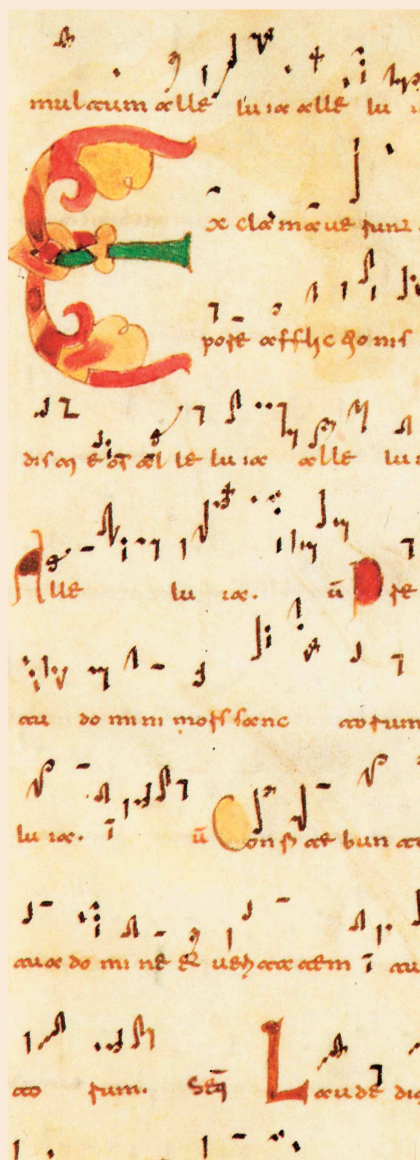 mulatum alle lu ia alle lu
Ex clamaue runt
pore afflic tionis
disti eos al le lu ia alle lu
Alle lu ia. v̄ Pre
tu do mini mors sanc torum
lu ia. ī v̄ Confi te bun tu
tua do mi ne et ueritatem ī
to rum. Seq̄ Laude di